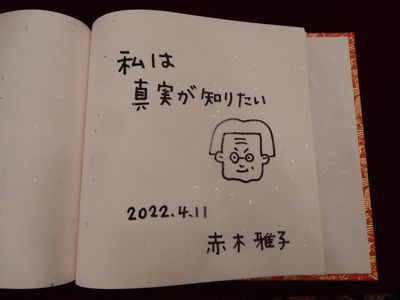 私は
真実が知りたい
2022.4.11
赤木雅子